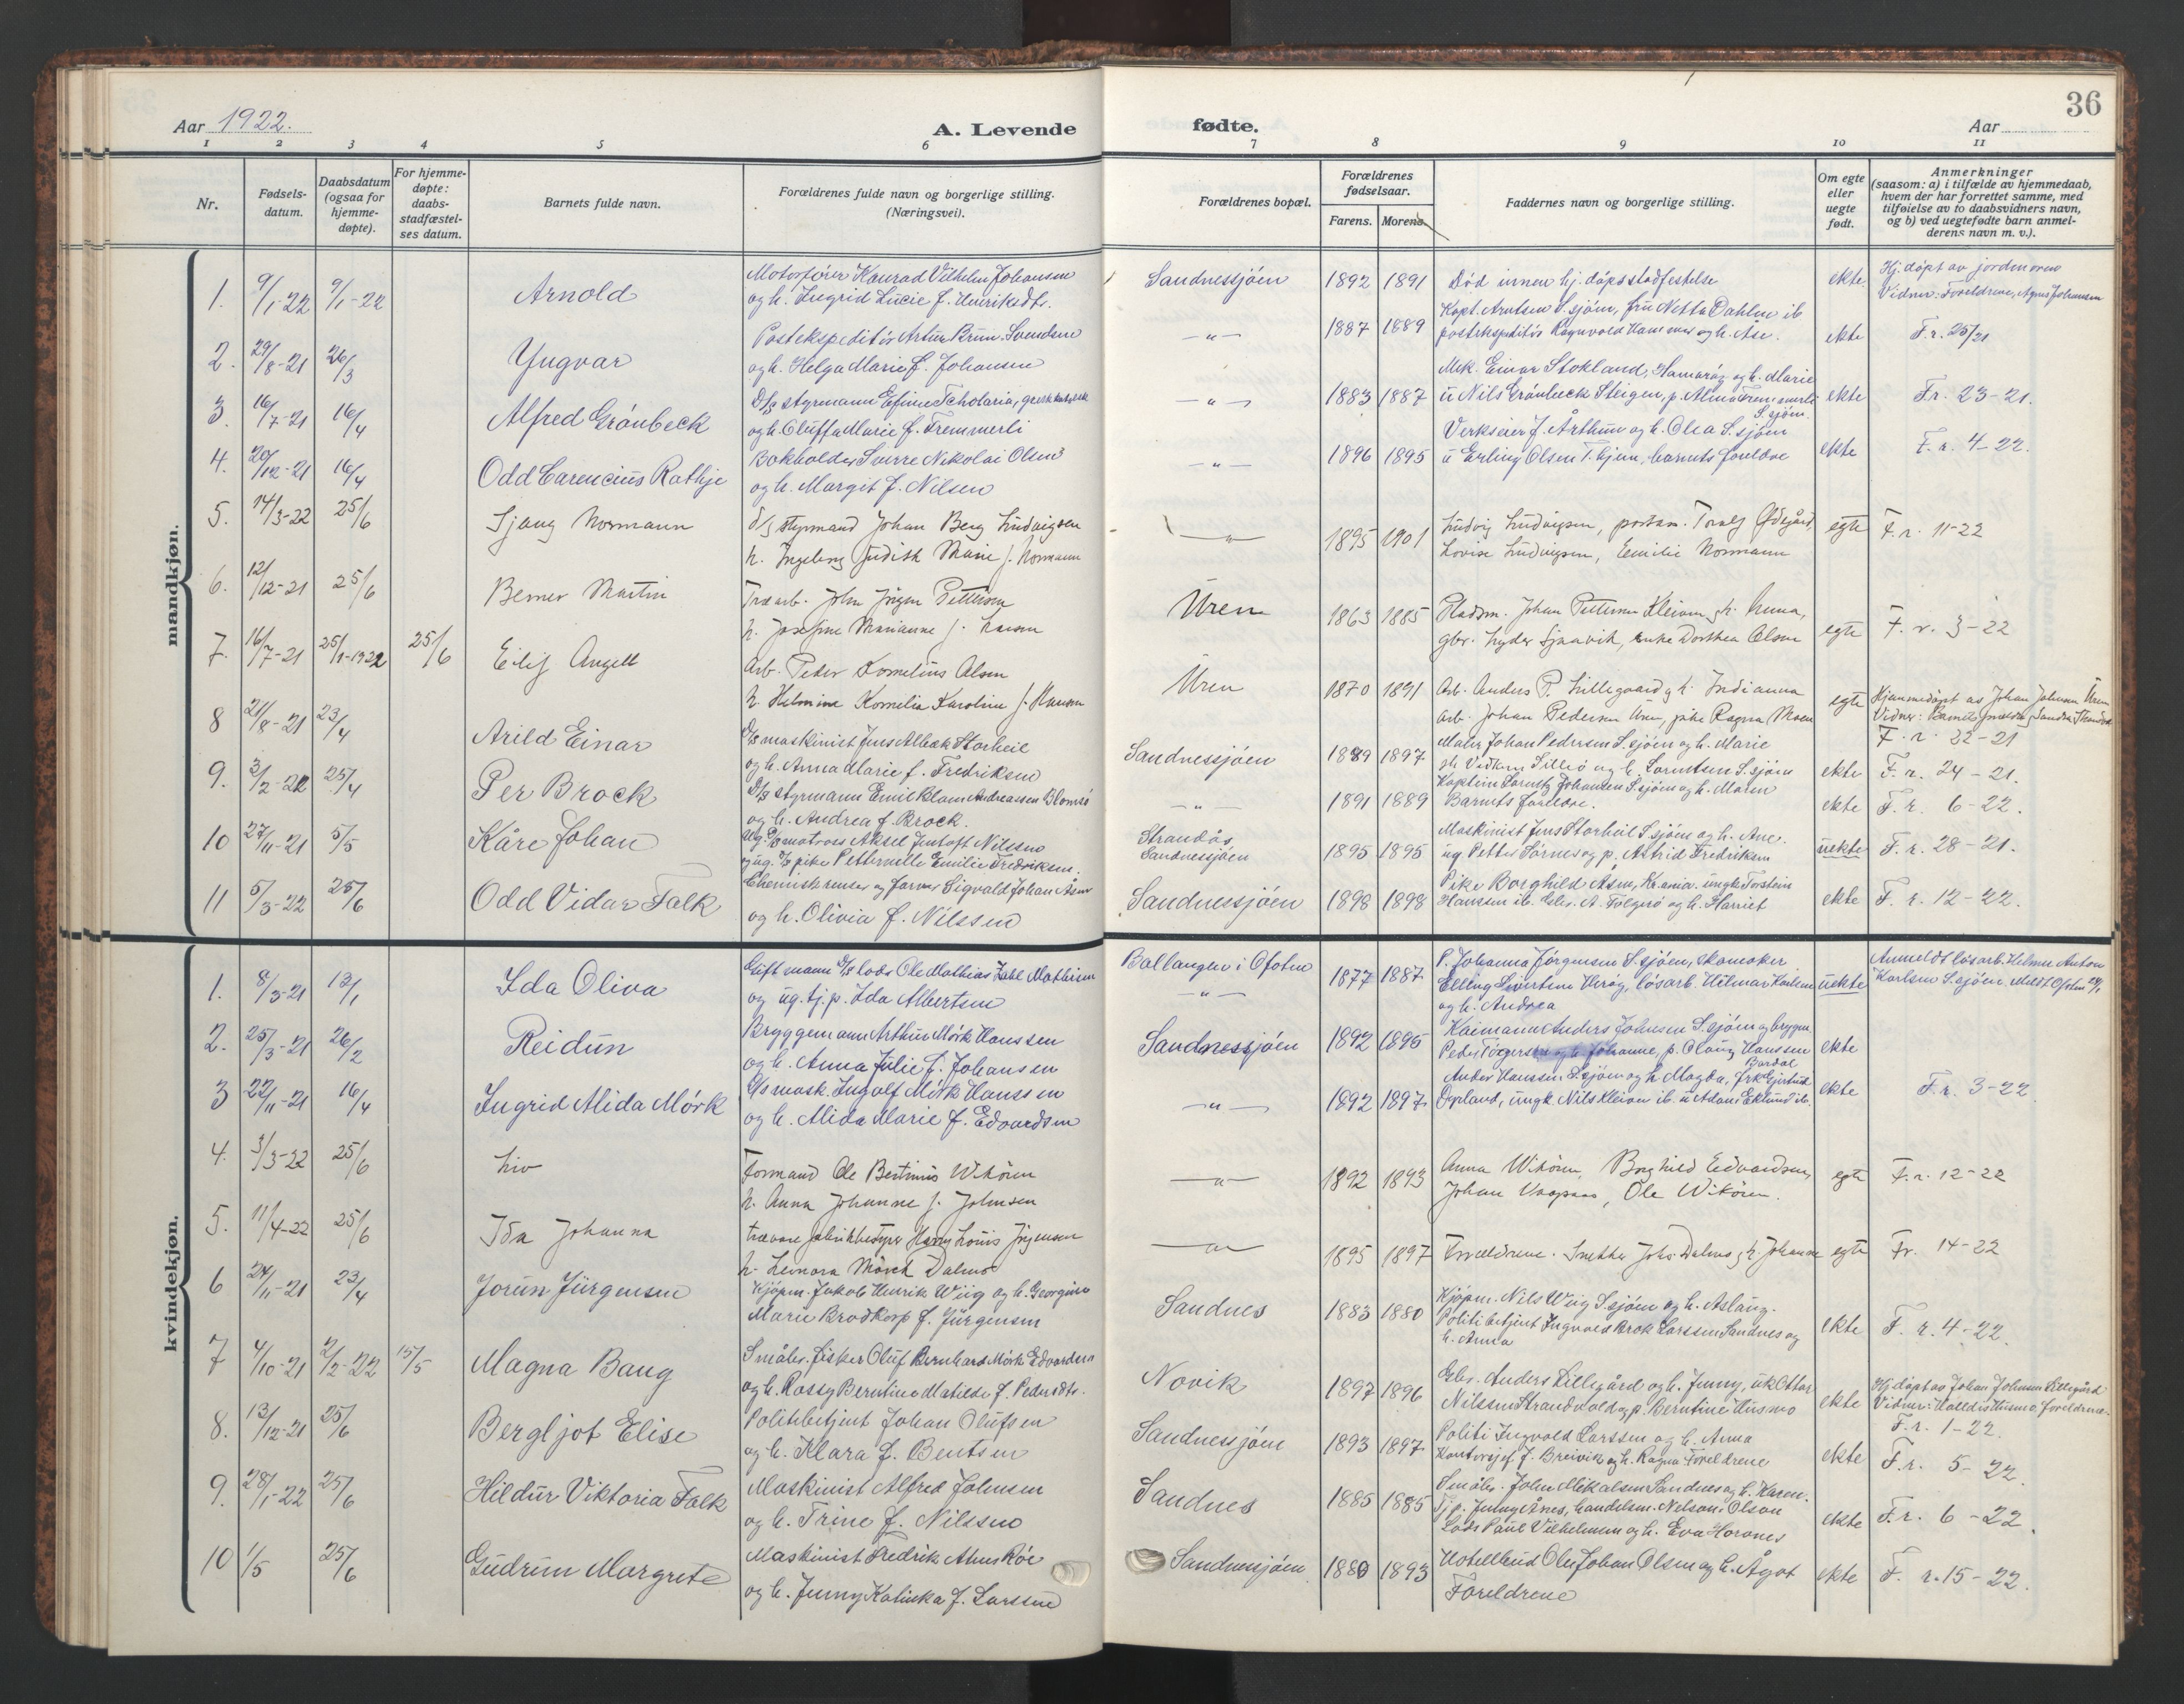 Aar 1922. A. Levende fødte. Aar 36
1 2 3 4 5 6 7 8 9 10 11
Nr.
Fødsels-datum.
Daabsdatum (ogsaa for hjemme-døpte).
For hjemme-døpte: daabs-stadfæstel-ses datum.
Barnets fulde navn.
Forældrenes fulde navn og borgerlige stilling. (Næringsvei).
Forældrenes bopæl.
Forældrenes fødselsaar.
Farens. Morens.
Faddernes navn og borgerlige stilling.
Om egte eller uegte født.
Anmerkninger (saasom: a) i tilfælde av hjemmedaab, hvem der har forrettet samme, med tilføielse av to daabsvidners navn, og b) ved uegtefødte barn anmel-derens navn m. v.).
mandkjøn.
1. 9/1-22 9/1-22 Arnold
Motorfører Konrad Vilhelm Johansen
og h. Ingrid Lucie f. Henriksdtr.
Sandnessjøen 1892 1891
Død innen hj. døpsstadfestelse
ekte
Hj. døpt av jordmoren
Vidner: Foreldrene, Agnes Johansen
2. 29/8-21 26/3 Yngvar
Postekspeditør Artur Brun Svendsen
og h. Helga Marie f. Johansen
— " — 1887 1889
Kapt. Arntsen S.sjøen, fru Netta Dahlen ib
postekspeditør Ragnvald Hammer og h. Ase.
ekte F. r. 25/21
3. 16/7-21 16/4 Alfred Grønbeck
D/s styrmann Efime Scholaria, gresk katolsk
og h. Oluffa Marie f. Fremmerli
— " — 1883 1887
Mek. Einar Stokland, Hamarøy og h. Marie
u Nils Grønbeck Steigen, p. Alma Fremmerli
S.sjøen.
ekte F.r. 23-21.
4. 20/12-21 16/4 Odd Carencius Rathje
Bokholder Sverre Nikolai Olsen
og h. Margit f. Nilsen
— " — 1896 1895
Verkseier J. Årthun og h. Olea S.sjøen
u Erling Olsen T.hjem, barnets foreldre
ekte F. r. 4-22.
5. 14/3-22 25/6 Sjang Normann
d/s styrmand Johan Berg Ludvigsen
h. Ingeborg Judith Marie f. Normann
— " — 1895 1901
Ludvig Ludvigsen, postass. Toralf Ødegård,
Lovise Ludvigsen, Emilie Normann
egte F. r. 11-22
6. 12/12-21 25/6 Berner Martin
Træarb. John Jørgen Pettersen
h. Josefine Marianne f. Larsen
Uren 1863 1885
Pladsm. Johan Pettersen Kleiven, h. Anna,
gbr. Lyder Sjaavik, enke Dorthea Olsen
egte F. r. 3-22
7. 16/7-21 25/1-1922 25/6 Eilif Angell
Arb. Peder Kornelius Olsen
h. Helmine Kornelia Karoline f. Hansen
Uren 1870 1891
Arb. Anders P. Lillegaard og h. Indianna
Arb. Johan Pedersen Uren, pike Ragna Moen
egte
Hjemmedøpt av Johan Johnsen Uren
Vidner: Barnets foreldre, Sandra Strandvold
F. r. 22-21
8 21/8-21 23/4 Arild Einar
D/s maskinist Jens Albæk Storheil
og h. Anna Marie f. Fredriksen
Sandnessjøen 1889 1897
Maler Johan Pedersen S.sjøen og h. Marie
ekte F. r. 24-21.
9. 3/2-22 25/4 Per Brock
D/s styrmann Emil Blom Andreassen Blomsø
og h. Andrea f. Brock.
— " — 1891 1889
Kaptein Lorentz Johansen S.sjøen og h. Maren
Barnets foreldre.
ekte F. r. 6-22.
10 27/11-21 5/5 Kåre Johan
Ug. D/s matros Aksel Jentoft Nilssen
og ug. T/j pike Petternelle Emilie Fredriksen.
Strandås
Sandnessjøen 1895 1895
Maskinist Jens Storheil S.sjøen og h. Ane.
ug Petter Sørnes og p. Astrid Fredriksen
uekte F. r. 28-21.
11 5/3-22 25/6 Odd Vidar Falk
Chemisk renser og farver Sigvald Johan Åsen
og h. Olivia f. Nilssen
Sandnessjøen 1898 1898
Pike Borghild Åsen, Kr.ania. ungk. Torstein
Hanssen ib. Gbr. A. Fölgerø og h. Harriet
ekte F. r. 12-22.
kvindekjøn.
1. 8/3-21 13/1 Ida Oliva
Gift mann D/s lods Ole Mathias Zahl Mathisen
og ug. tj. p. Ida Albertsen
Ballangen i Ofoten
— " — 1877 1887
P. Johanna Jörgensen S.sjøen, skomaker
Elling Sivertsen Herøy, løsarb. Hilmar Karlsen
og h. Andrea
uekte
Anmeldt løsarb. Helmer Anton
Karlsen S.sjøen. Meldt Ofoten
2. 25/3-21 26/2 Reidun
Bryggemann Arthur Mörk Hanssen
og h. Anna Julie f. Johansen
Sandnessjøen 1892 1895
Kaimann Anders Johnsen S.sjøen og bryggem.
Peder Torgersen og h. Johanne, p. Olaug Hanssen
Bardal
ekte
3 22/11-21 16/4 Ingrid Alida Mörk
D/s mask. Ingolf Mörk Hanssen
og h. Alida Marie f. Edvardsen
— " — 1892 1897
Anders Hanssen S.sjøen og h. Magda, frk Gjertrud
Opland, ungk. Nils Kleiven ib. u Adam Eklund ib.
ekte F. r. 3-22.
4. 3/3-22 25/6 Liv
Formand Ole Bertinus Wikören
h. Anna Johanne f. Johnsen
— " — 1892 1893
Anna Wikören, Borghild Edvardsen,
Johan Vaapnes, Ole Wikören.
egte F. r. 12-22
5. 11/4-22 25/6 Ida Johanna
trævare fabrikbestyrer Harry Louis Jörgensen
h. Leonora Mörch Dalmo
— " — 1895 1897
Forældrene. Snekker Johs Dalmo, h. Johanne
egte F.r. 14-22
6 24/11-21 23/4 Jorun Jürgensen
Kjöpm. Jakob Henrik Wiig og h. Georgine
Marie Brodkorp f. Jürgensen
Sandnes 1883 1880
Kjöpm. Nils Wiig S.sjøen og h. Aslaug.
Politibetjent Ingvald Brok Larssen Sandnes og
h. Anna
ekte F. r. 4-22.
7 4/10-21 2/2-22 15/5 Magna Baug
Småbr. fisker Oluf Bernhard Mörk Edvardsen
og h. Rossy Berntine Matilde f. Pedersdtr.
Novik 1897 1896
Gbr. Anders Lillegård og h. Jenny, uk Ottar
Nilssen Strandvold og p. Berntine Husmo
ekte
Hj. döpt av Johan Johnsen Lillegård
Vidner: Halldis Husmo foreldrene.
F. r. 1-22.
8. 13/12-21 25/6 Bergljot Elise
Politibetjent Johan Olufsen
og h. Klara f. Bentsen
Sandnessjøen 1893 1897
Politi Ingvald Larssen og h. Anna
Kontorsjef J. Breivik og h. Ragna Foreldrene
ekte F. r. 5-22.
9. 28/1-22 25/6 Hildur Viktoria Falk
Maskinist Alfred Johnsen
og h. Trine f. Nilssen
Sandnes 1885 1885
Småbr. John Mikalsen Sandnes og h. Karen.
Tj p. Jenny Ånes, handelsm. Nelson Olson
Lods Paul Vilhelmsen og h. Eva Horvnes
ekte F. r. 6-22.
10 1/5 25/6 Gudrun Margrete
Maskinist Fredrik Ahus Röe
og h. Jenny Kalinka f. Larssen
Sandnessjøen 1880 1893
Hotellbud Ole Johan Olsen og h. Ågot
Foreldrene
ekte F. r. 15-22.